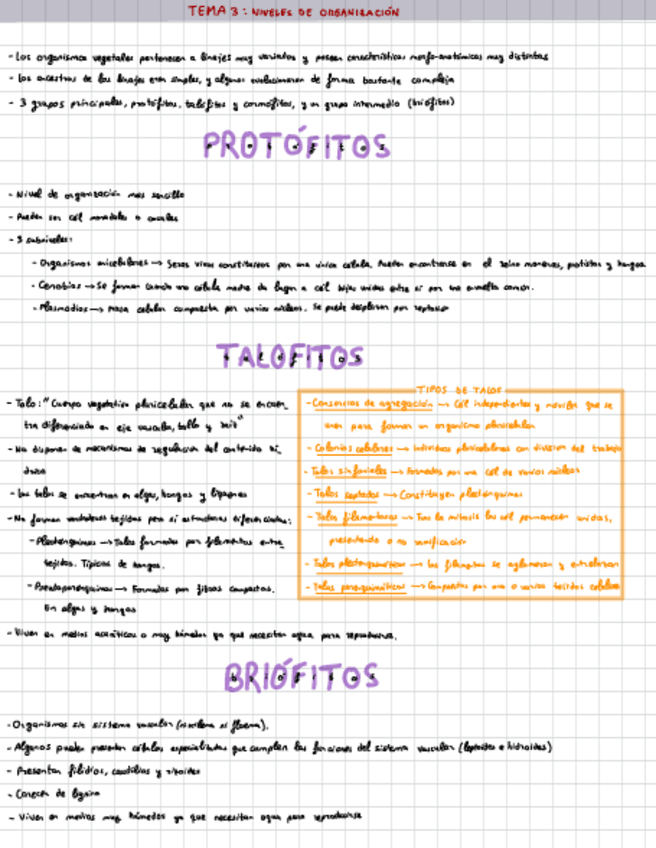 TEMA 3: NIVELES DE ORGANIZACIÓN
- Los organismos vegetales pertenecen a linajes muy variados y poseen características morfo-anatómicas muy distintas
- Los ancestros de los linajes eran simples, y algunos evolucionaron de forma bastante compleja
- 3 grupos principales, protófitos, talófitos y cormófitos, y un grupo intermedio (briófitos)
PROTÓFITOS
- Nivel de organización más sencillo
- Pueden ser cél
- 3 subniveles:
- Organismos unicelulares → Seres vivos constituidos por una única célula. Pueden encontrarse en el reino moneras, protistas y hongos
- Cenobios → Se forman cuando una célula madre da lugar a cél hijas unidas entre sí por una envuelta común.
- Plasmodios → Masa celular compuesta por varios núcleos. Se puede desplazar por reptación
TALOFITOS
- Talo: "Cuerpo vegetativo pluricelular que no se encuen
tra diferenciado en eje vascular, tallo y raíz"
- No dispone de mecanismos de regulación del contenido hí
drico
- Los talos se encuentran en algas, hongos y líquenes
- No forman verdaderos tejidos pero sí estructuras diferenciadas:
- Plecténquimas → Talos formados por filamentos entre
tejidos. Típicos de hongos.
- Pseudoparénquimas → Formados por fibras compactas.
En algas y hongos
- Viven en medios acuáticos o muy húmedos ya que necesitan agua para reproducirse.
TIPOS DE TALOS
- Consorcios de agregación → Cél independientes y móviles que se
unen para formar un organismo pluricelular
- Colonias celulares → Individuos pluricelulares con división del trabajo
- Talos sifonales → Formados por una cél de varios núcleos
- Talos septados → Constituyen plecténquimas
- Talos filamentosos → Tras la mitosis las cél permanecen unidas,
presentando o no ramificación
- Talos plectenquimáticos → Los filamentos se aglomeran y entrelazan
- Talos parenquimáticos → Compuestos por uno o varios tejidos celulares
BRIÓFITOS
- Organismos sin sistema vascular (ni xilema ni floema).
- Algunos pueden presentar células especializadas que cumplen las funciones del sistema vascular (leptoides e hidroides)
- Presentan filidios, caulidios y rizoides
- Carecen de lignina
- Viven en medios muy húmedos ya que necesitan agua para reproducirse